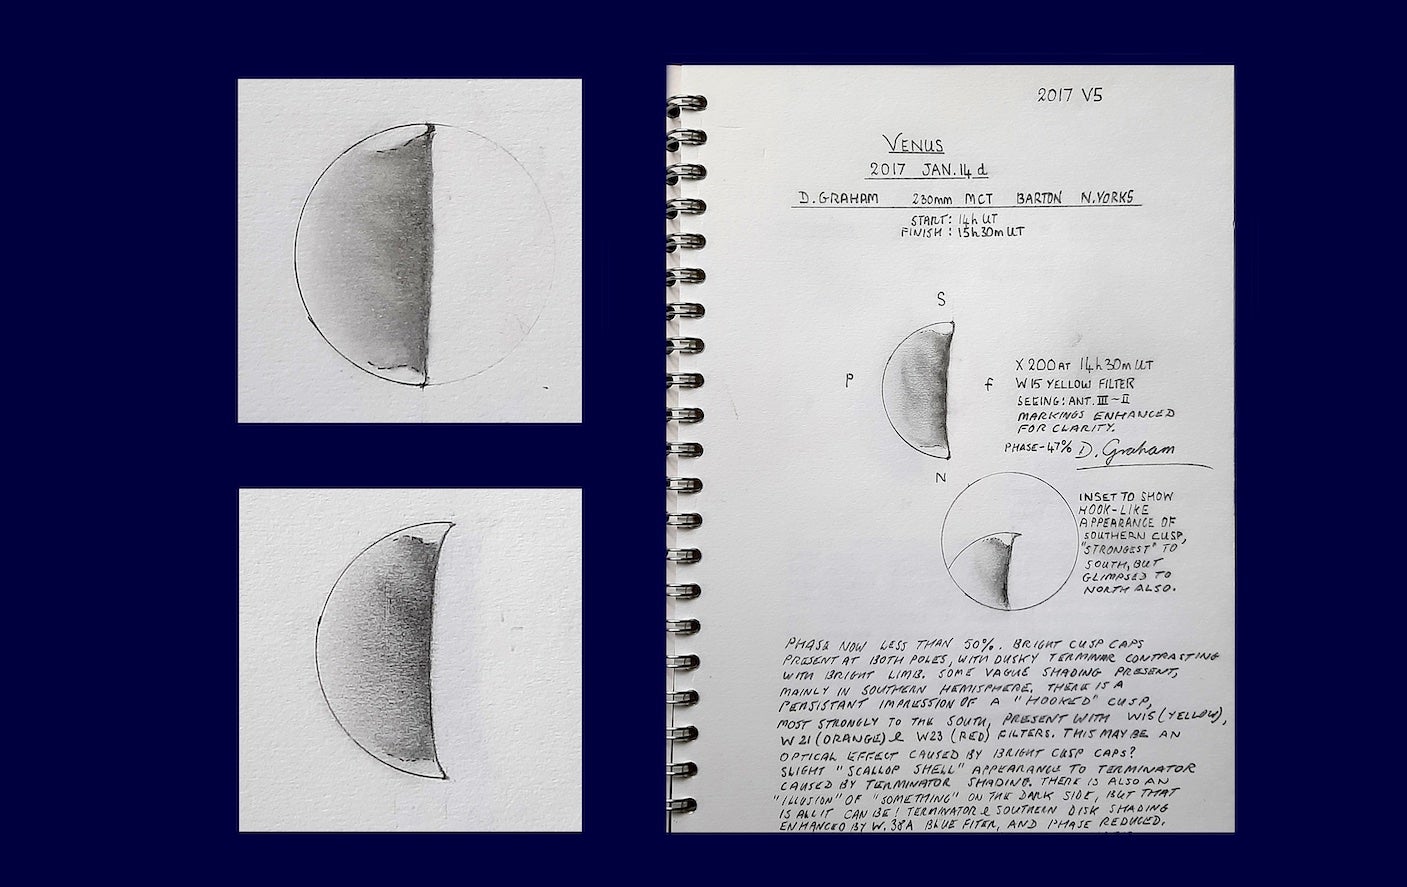 2017 V5
VENUS
2017 JAN. 14 d
D. GRAHAM 230mm MCT BARTON N. YORKS
START: 14h UT
FINISH: 15h30m UT
S
P
f
N
X 200 AT 14h30m UT
W15 YELLOW FILTER
SEEING: ANT. III~II
MARKINGS ENHANCED
FOR CLARITY.
PHASE-47% D. Graham
INSET TO SHOW
HOOK-LIKE
APPEARANCE OF
SOUTHERN CUSP,
"STRONGEST" TO
SOUTH, BUT
GLIMPSED TO
NORTH ALSO.
PHASE NOW LESS THAN 50%. BRIGHT CUSP CAPS
PRESENT AT BOTH POLES, WITH DUSKY TERMINAR CONTRASTING
WITH BRIGHT LIMB. SOME VAGUE SHADING PRESENT,
MAINLY IN SOUTHERN HEMISPHERE. THERE IS A
PERSISTANT IMPRESSION OF A "HOOKED" CUSP,
MOST STRONGLY TO THE SOUTH, PRESENT WITH W15 (YELLOW),
W21 (ORANGE) & W23 (RED) FILTERS. THIS MAY BE AN
OPTICAL EFFECT CAUSED BY BRIGHT CUSP CAPS?
SLIGHT "SCALLOP SHELL" APPEARANCE TO TERMINATOR
CAUSED BY TERMINATOR SHADING. THERE IS ALSO AN
"ILLUSION" OF "SOMETHING" ON THE DARK SIDE, BUT THAT
IS ALL IT CAN BE! TERMINATOR & SOUTHERN DISK SHADING
ENHANCED BY W.38A BLUE FITER, AND PHASE REDUCED.